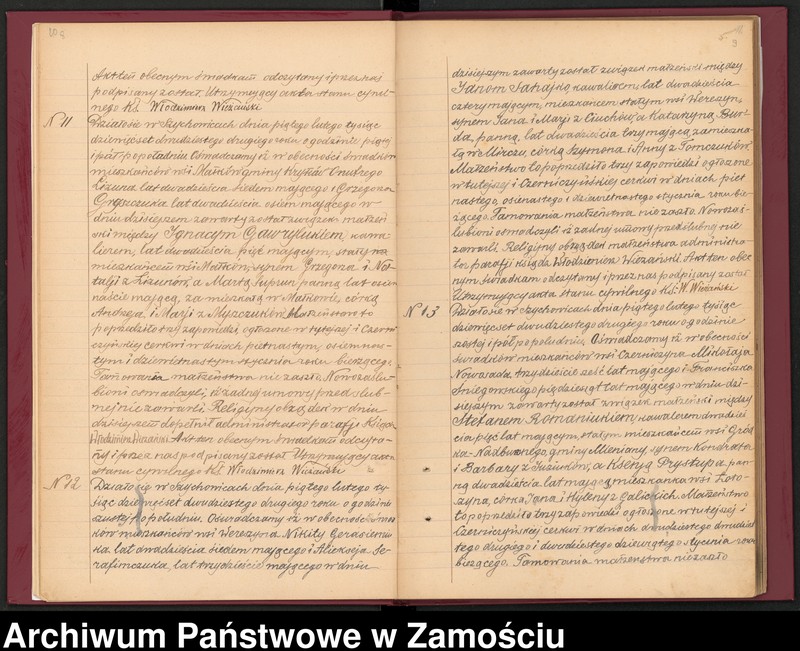 Akt ten obecnym świadkom odczytany i przez nas
podpisany został. Utrzymujący akta stanu cywil-
nego Ks. Włodzimierz Wieżański
N° 11
Działo się w Szychowicach dnia piątego lutego tysiąc
dziewięćset dwudziestego drugiego roku o godzinie piątej
i pół po południu. Oświadczamy iż w obecności świadków
mieszkańców wsi Małków gminy Kryłów Onufrego
lat dwadzieścia siedem mającego i Grzegorza
lat dwadzieścia osiem mającego w
dniu dzisiejszem zawarty został związek małżeń
ski między Ignacym Gawrylukiem, kawa
lerem, lat dwadzieścia pięć mającym, stałym
mieszkańcem wsi Małków, synem Grzegorza i Na
talji z a Martą Suprun panną lat osiem
naście mającą, zamieszkałą w Małkowie, córką
Andreja, i Marji z Myszczuków. Małżeństwo to
poprzedziło trzy zapowiedzi ogłoszone w tutejszej i Czerni
czyńskiej cerkwi w dniach piętnastym, osiemnas-
tym i dziewiętnastym stycznia roku bieżącego.
Tamowania małżeństwa nie zaszło. Nowozaślu-
bieni oświadczyli, iż żadnej umowy przedślub-
nej nie zawarli. Religijny obrządek w dniu
dzisiejszem dopełnił administrator parafji Ksiądz
Włodzimierz Wieżański. Akt ten obecnym świadkom odczyta-
ny i przez nas podpisany został. Utrzymujący akta
stanu cywilnego Ks. Włodzimierz Wieżański
N° 12
Działo się w Szychowicach dnia piątego lutego ty-
siąc dziewięćset dwudziestego drugiego roku o godzinie
szóstej po południu. Oświadczamy iż w obecności świad
ków mieszkańców wsi Wereszyna Nikity Gerasimiu
ka lat dwadzieścia siedem mającego i Aleksieja Se-
rafimczuka, lat trzydzieście mającego w dniu
9
dzisiejszym zawarty został związek małżeński między
Janem kawalerem, lat dwadzieścia
cztery mającym, mieszkańcem stałym wsi Wereszyn,
synem Jana i Marji z a Katarzyną Bur-
da, panną, lat dwadzieścia trzy mającą, zamieszka-
łą w Mirczu, córką Szymona i Anny z Tomczuków.
Małżeństwo to poprzedziło trzy zapowiedzi ogłoszone
w tutejszej i Czerniczyńskiej cerkwi w dniach pięt
nastego, osiemnastego i dziewiętnastego stycznia roku bie-
żącego. Tamowania małżeństwa nie zaszło. Nowozaś-
lubieni oświadczyli iż żadnej umowy przedślubnej nie
zawarli. Religijny obrządek małżeństwa administra-
tor parafji ksiądz Włodzimierz Wieżański. Akt ten obec
nym świadkom odczytany i przez nas podpisany został
Utrzymujący akta stanu cywilnego Ks. W. Wieżański
N° 13
Działo się w Szychowicach dnia piątego lutego tysiąc
dziewięćset dwudziestego drugiego roku o godzinie
szóstej i pół po południu. Oświadczamy iż w obecności
świadków mieszkańców wsi Czerniczyna Mikołaja
Nowosada trzydzieście sześć lat mającego i Franciszka
Śniegowskiego pięćdziesiąt lat mającego w dniu dzi-
siejszym zawarty został związek małżeński między
Stefanem Romaniukiem, kawalerem dwadzieś
cia pięć lat mającym, stałym mieszkańcem wsi Gród
ka-Nadbużnego, gminy Mieniany, synem Kondrata
i Barbary z a Ksenją Prystupa, pan
ną dwadzieścia lat mającą mieszkanką wsi Łoto-
szyna, córką Jana i Heleny z Galickich. Małżeństwo
to poprzedziło trzy zapowiedzi ogłoszone w tutejszej i
Czerniczyńskiej cerkwi w dniach
tego drugiego i dwudziestego dziewiątego stycznia roku
bieżącego. Tamowania małżeństwa nie zaszło
Archiwum Państwowe w Zamościu